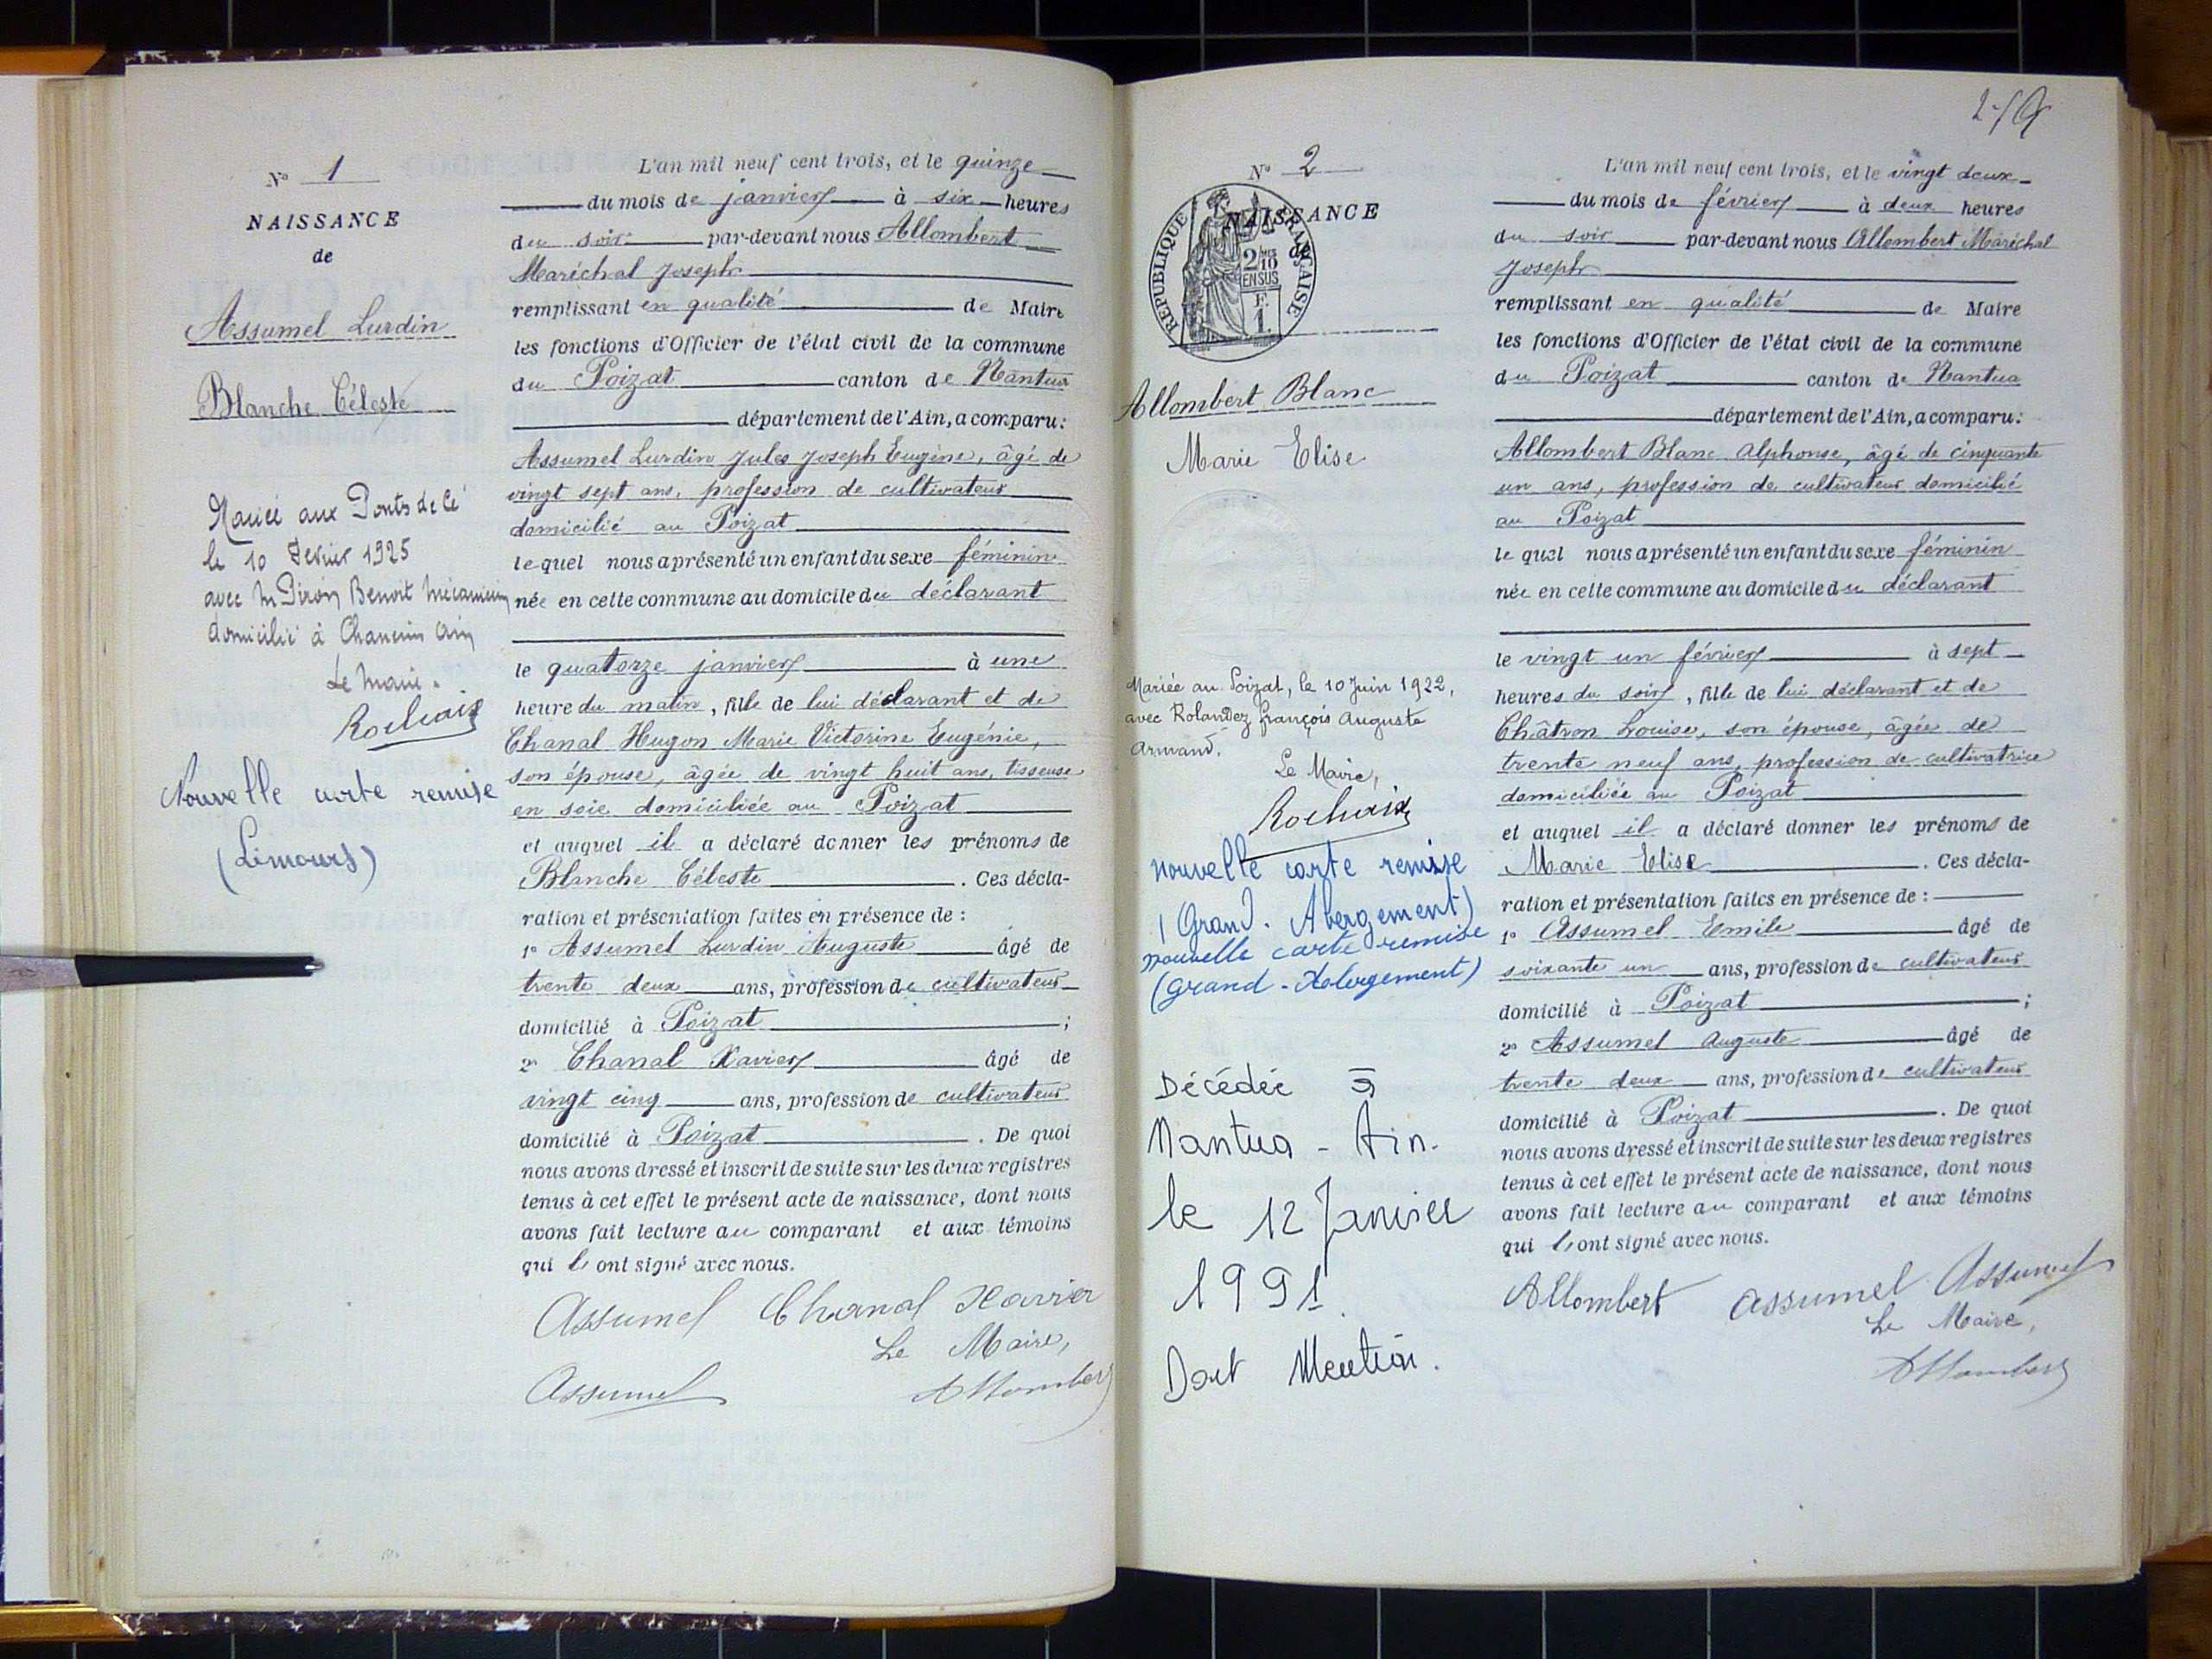 N° 1
NAISSANCE
de
Assumel Lurdin
Blanche Céleste
Mariée aux Ponts de Cé
le 10 Février 1925
avec M Piron Benoit mécanicien
domicilié à
Le Maire.
Rochaix
Nouvelle carte remise
(Limours)
L'an mil neuf cent trois, et le quinze
du mois de janvier à six heures
du soir par-devant nous Allombert
Maréchal Joseph
remplissant en qualité de Maire
les fonctions d'Officier de l'état civil de la commune
du Poizat canton de Nantua
département de l'Ain, a comparu:
Assumel Lurdin Jules Joseph Eugène, âgé de
vingt sept ans, profession de cultivateur
domicilié au Poizat
lequel nous a présenté un enfant du sexe féminin
née en cette commune au domicile du déclarant
le quatorze janvier à une
heure du matin, fille de lui déclarant et de
Chanal Hugon Marie Victorine Eugénie,
son épouse, âgée de vingt huit ans, tisseuse
en soie domiciliée au Poizat
et auquel il a déclaré donner les prénoms de
Blanche Céleste. Ces décla-
ration et présentation faites en présence de :
1° Assumel Lurdin Auguste âgé de
trente deux ans, profession de cultivateur
domicilié à Poizat ;
2° Chanal Xavier âgé de
vingt cinq ans, profession de cultivateur
domicilié à Poizat. De quoi
nous avons dressé et inscrit de suite sur les deux registres
tenus à cet effet le présent acte de naissance, dont nous
avons fait lecture au comparant et aux témoins
qui l' ont signé avec nous.
Assumel Chanal Xavier
Le Maire,
Assumel Allombert
N° 2
NAISSANCE
de
REPUBLIQUE FRANÇAISE
2/10 EN SUS
F. 1.
Allombert Blanc
Marie Elise
Mariée au Poizat, le 10 Juin 1922,
avec Rolandez François Auguste
Armand.
Le Maire,
Rochaix
nouvelle carte remise
(Grand. Abergement)
nouvelle carte remise
(Grand-Abergement)
Décédée à
Nantua - Ain.
le 12 Janvier
1991.
Dont Mention.
L'an mil neuf cent trois, et le vingt deux
du mois de février à deux heures
du soir par-devant nous Allombert Maréchal
Joseph
remplissant en qualité de Maire
les fonctions d'Officier de l'état civil de la commune
du Poizat canton de Nantua
département de l'Ain, a comparu:
Allombert Blanc Alphonse, âgé de cinquante
un ans, profession de cultivateur domicilié
au Poizat
lequel nous a présenté un enfant du sexe féminin
née en cette commune au domicile du déclarant
le vingt un février à sept
heures du soir, fille de lui déclarant et de
Châtron Louise, son épouse, âgée de
trente neuf ans, profession de cultivatrice
domiciliée au Poizat
et auquel il a déclaré donner les prénoms de
Marie Elise. Ces décla-
ration et présentation faites en présence de :
1° Assumel Emile âgé de
soixante un ans, profession de cultivateur
domicilié à Poizat ;
2° Assumel Auguste âgé de
trente deux ans, profession de cultivateur
domicilié à Poizat. De quoi
nous avons dressé et inscrit de suite sur les deux registres
tenus à cet effet le présent acte de naissance, dont nous
avons fait lecture au comparant et aux témoins
qui l' ont signé avec nous.
Allombert Assumel Assumel
Le Maire,
Allombert